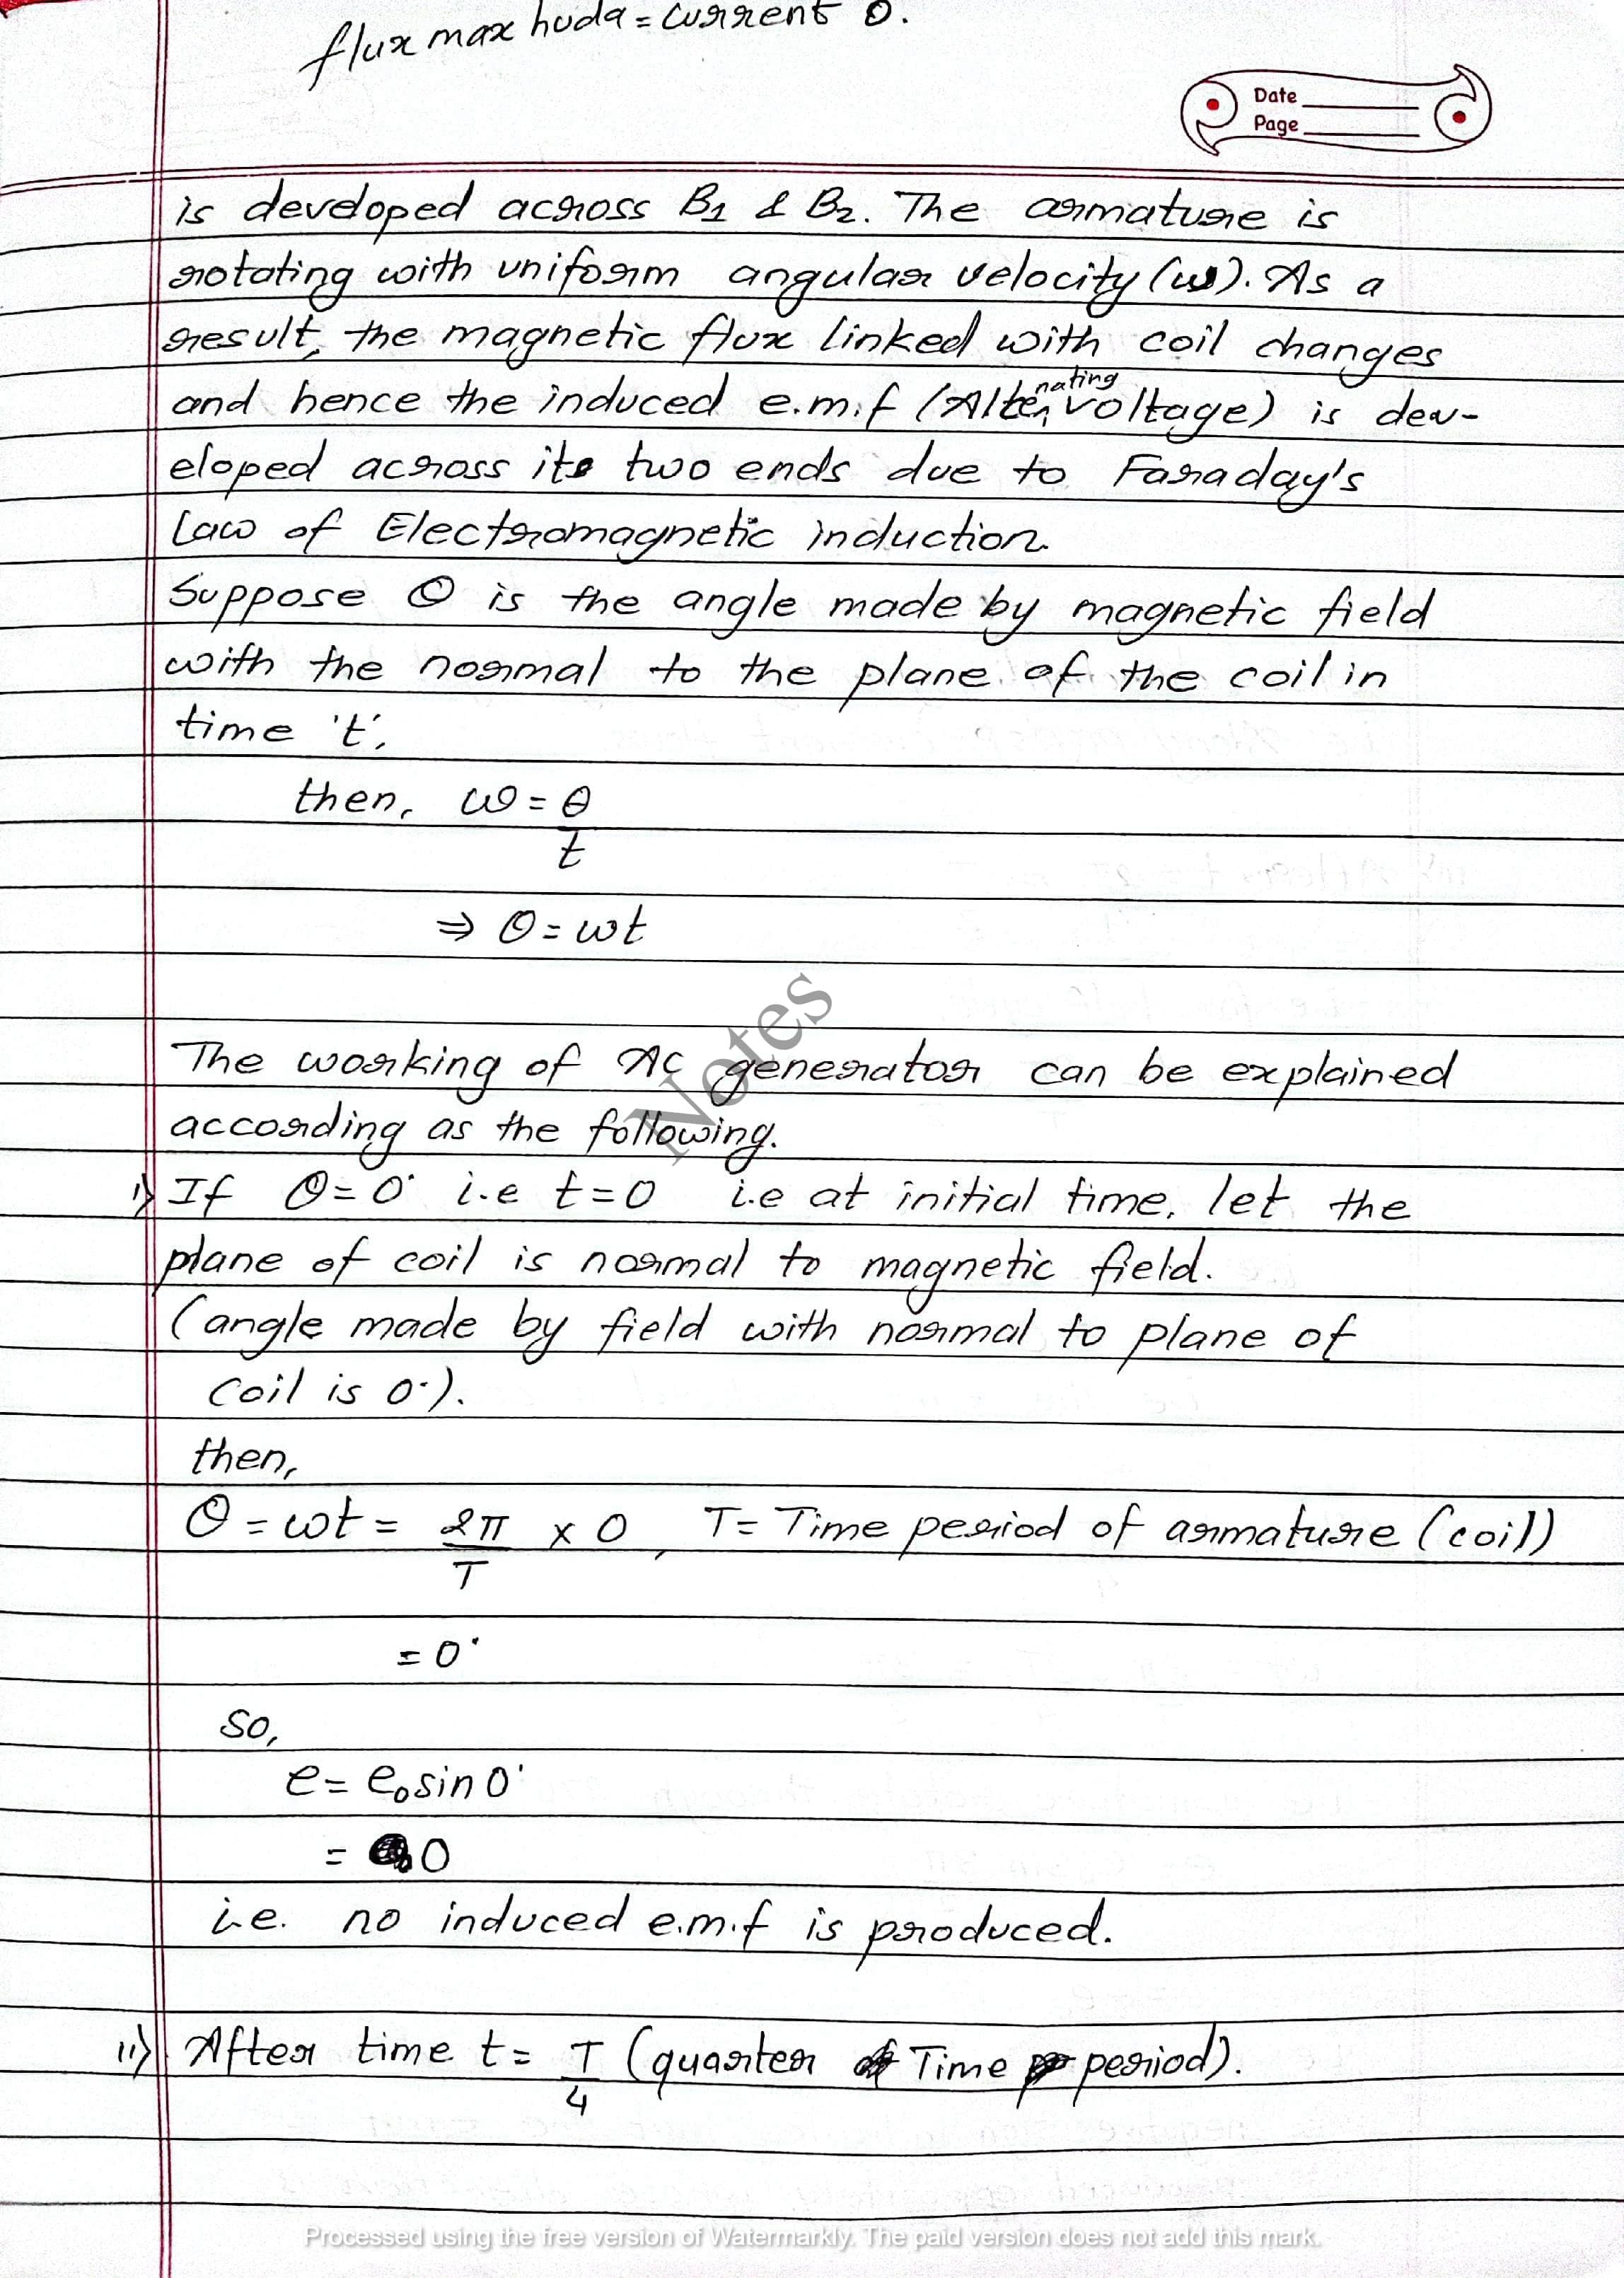 flux max huda = current 0.
Date
Page
is developed across B₁ & B₂. The armature is
rotating with uniform angular velocity (ω). As a
result, the magnetic flux linked with coil changes
and hence the induced e.m.f (Alternating voltage) is dev-
eloped across its two ends due to Faraday's
Law of Electromagnetic induction.
Suppose θ is the angle made by magnetic field
with the normal to the plane of the coil in
time 't',
then, ω = θ/t
⇒ θ = ωt
Notes
The working of AC generator can be explained
according as the following.
i) If θ = 0° i.e t = 0 i.e at initial time, let the
plane of coil is normal to magnetic field.
(angle made by field with normal to plane of
coil is 0°).
then,
θ = ωt = 2π/T × 0, T = Time period of armature (coil)
= 0°
so,
e = e₀ sin 0°
= 0
i.e. no induced e.m.f is produced.
ii) After time t = T/4 (quarter of Time period).
Processed using the free version of Watermarkly. The paid version does not add this mark.